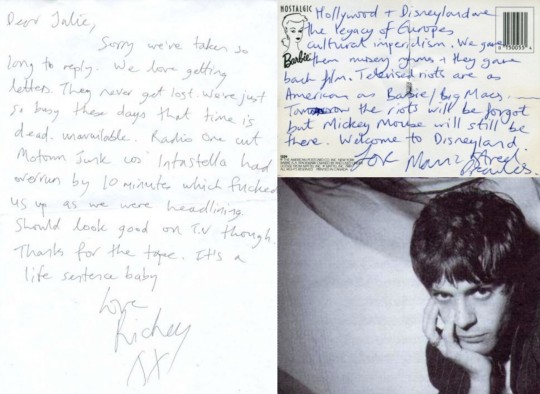 Dear Julie,
Sorry we've taken so
long to reply. We love getting
letters. They never get lost. We've just
so busy these days that time is
dead. unavailable. Radio One cut
Motown Junk cos' Intastella had
overrun by 10 minutes which fucked
us up as we were headlining.
Should look good on T.V though.
Thanks for the tape. It's a
life sentence baby
Love
Richey
XX
NOSTALGIC
Barbie
Hollywood + Disneyland are
the legacy of Europes
cultural imperialism. We gave
them nursery rhymes + they gave
back film. Televised riots are as
American as Barbie/Big Macs.
Tomorrow the riots will be forgot
but Mickey Mouse will still be
there. Welcome to Disneyland.
Manic Street
Preachers.